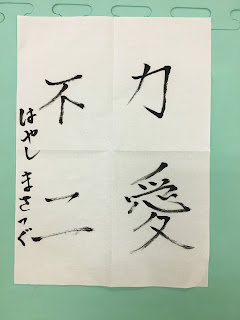 力愛
不二
はやし まさつぐ